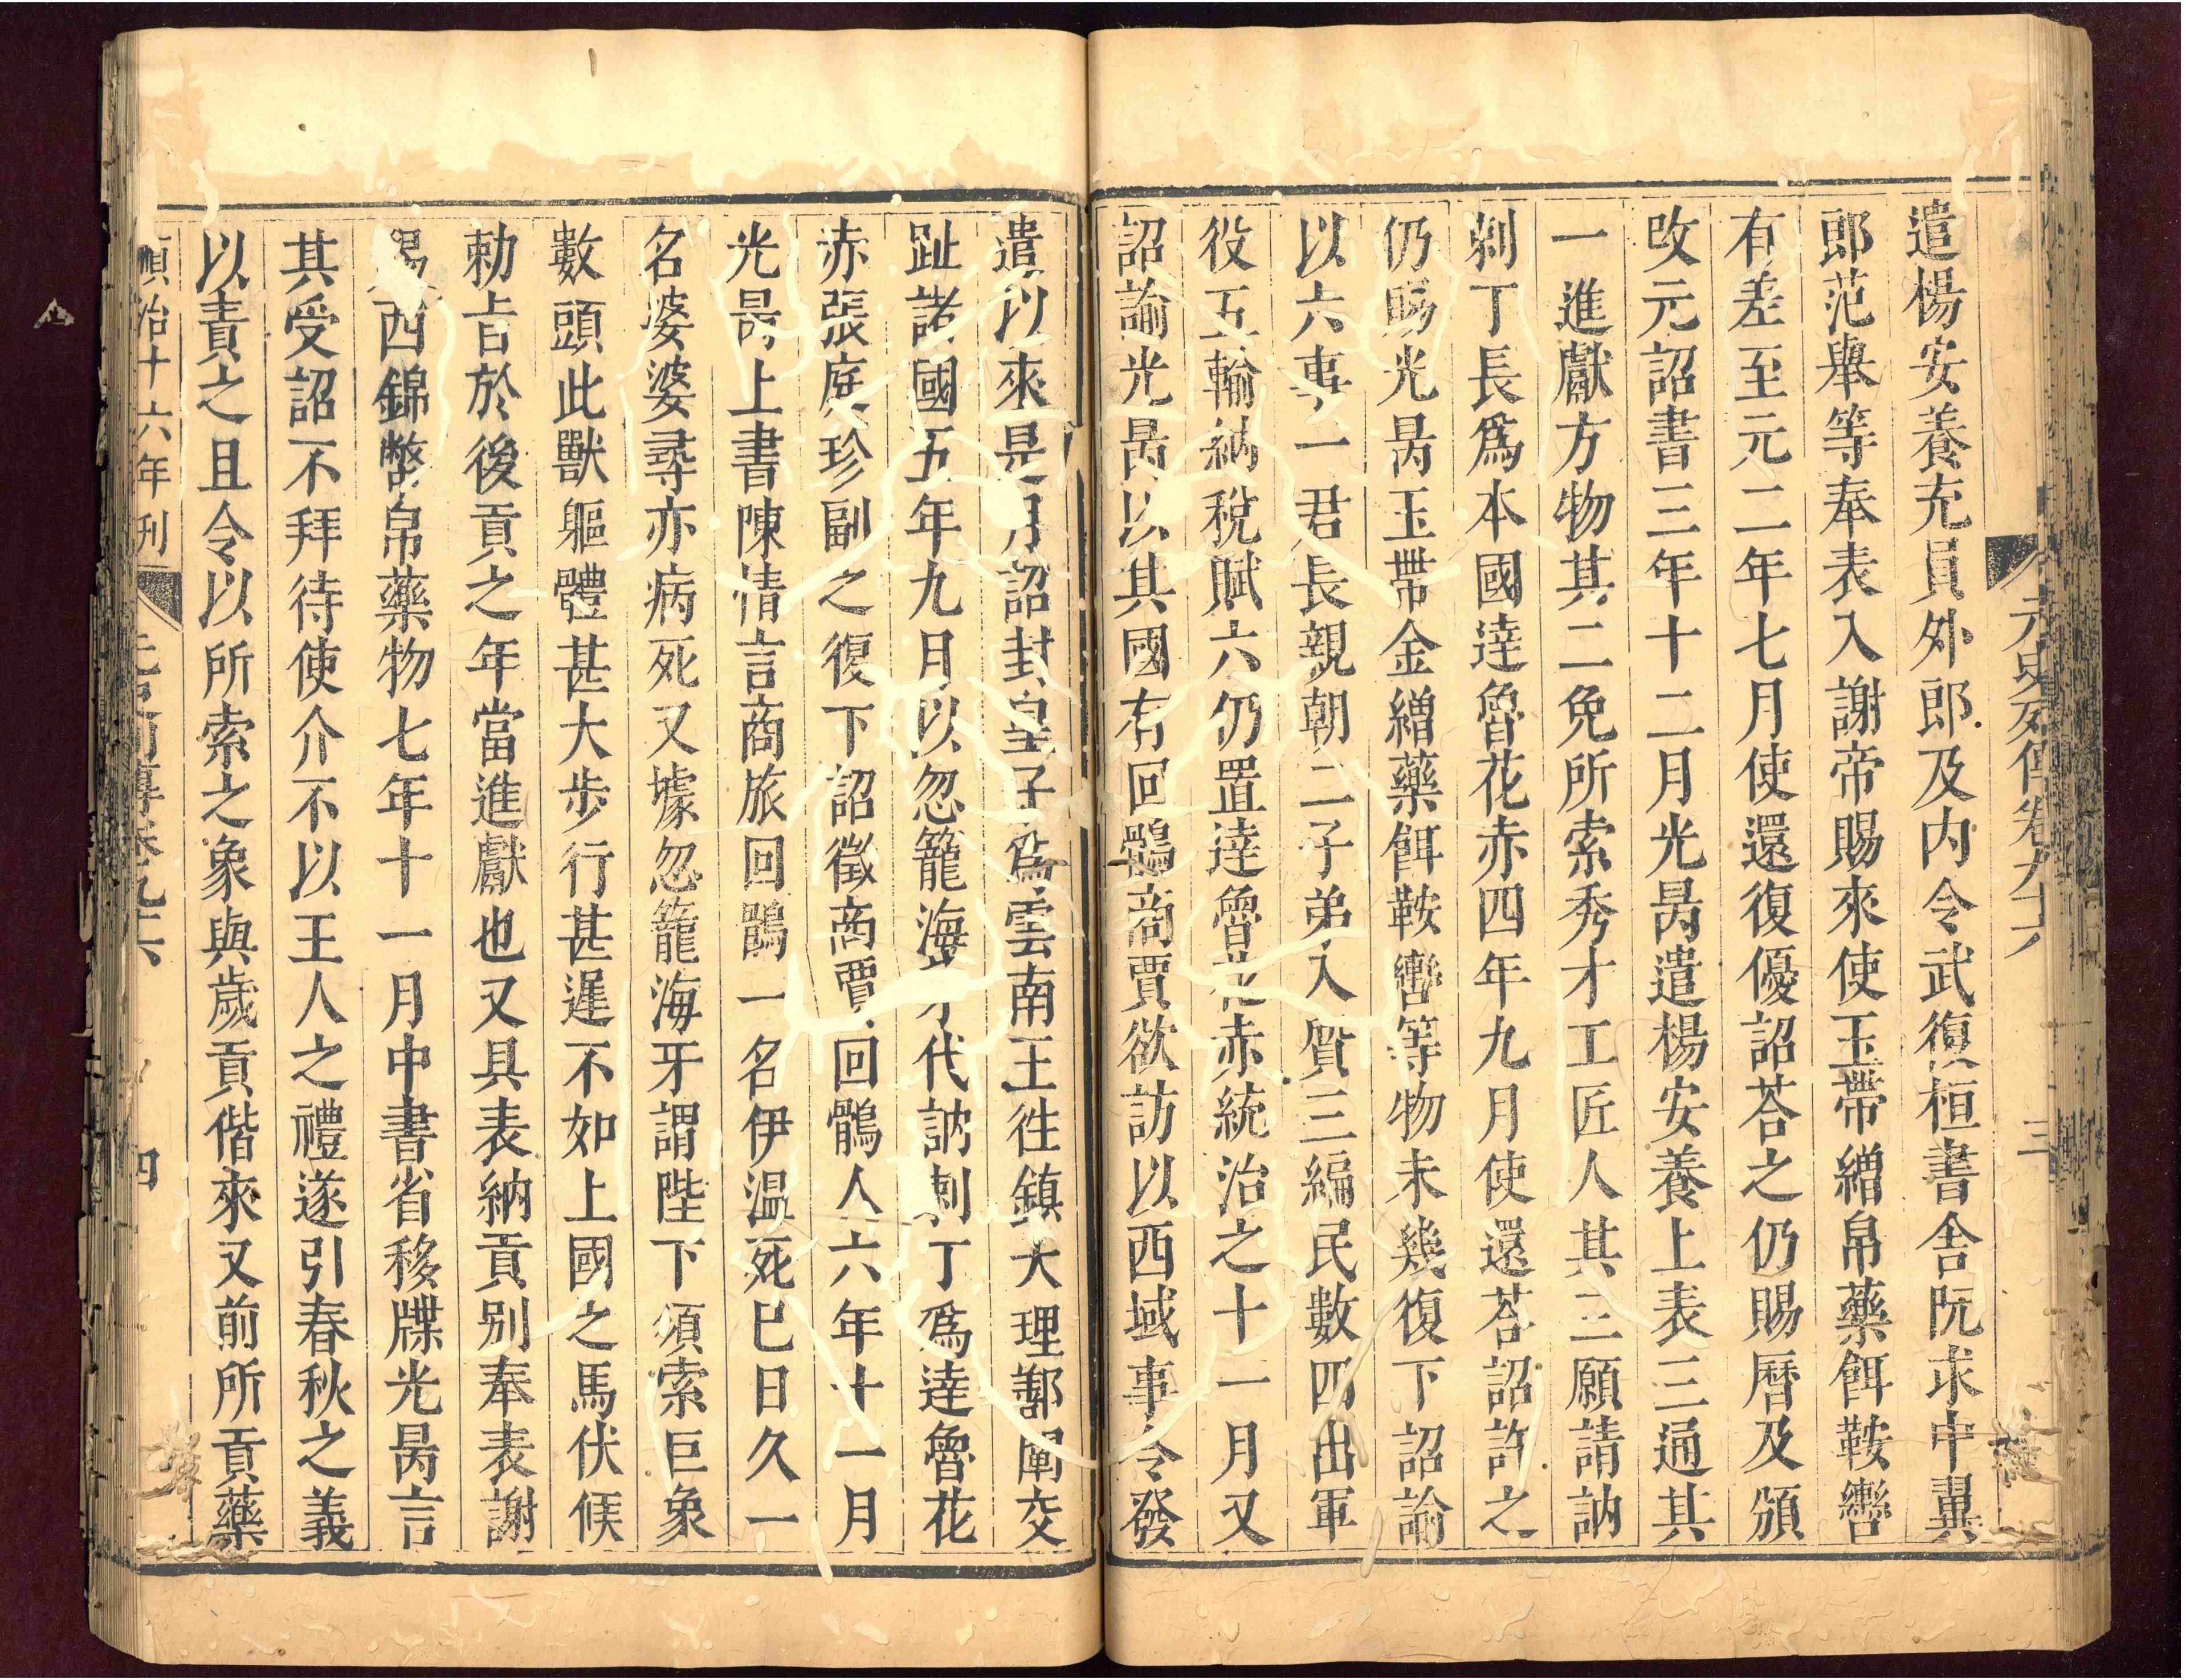 元史列傳卷九十六
三
遣楊安養充員外郎及内令武復桓書舎阮求中翼
郎范舉等奉表入謝帝賜來使玉帶繒帛藥餌鞍轡
有差至元二年七月使還復優詔荅之仍賜曆及頒
攺元詔書三年十二月光昺遣楊安養上表三通其
一進獻方物其二免所索秀才工匠人其三願請訥
剌丁長爲本國逹魯花赤四年九月使還荅詔許之
仍賜光昺玉帶金繒藥餌鞍轡等物未幾復下詔諭
以六事一君長親朝二子弟入質三編民數四出軍
役五輸納稅賦六仍置逹魯花赤統治之十一月又
詔諭光昺以其國有回鶻商賈欲訪以西域事令發
遣以來是月詔封皇子爲雲南王徃鎮大理鄯闡交
趾諸國五年九月以忽籠海牙代訥剌丁爲逹魯花
赤張庭珍副之復下詔徵商賈回鶻人六年十一月
光昺上書陳情言商旅回鶻一名伊温死巳日久一
名婆婆尋亦病死又據忽籠海牙謂陛下須索巨象
數頭此獸軀體甚大步行甚遲不如上國之馬伏候
勅旨於後貢之年當進獻也又具表納貢别奉表謝
賜西錦幣帛藥物七年十一月中書省移牒光昺言
其受詔不拜待使介不以王人之禮遂引春秋之義
以責之且令以所索之象與歲貢偕來又前所貢藥
順治十六年刋
元史列傳卷九十六
四